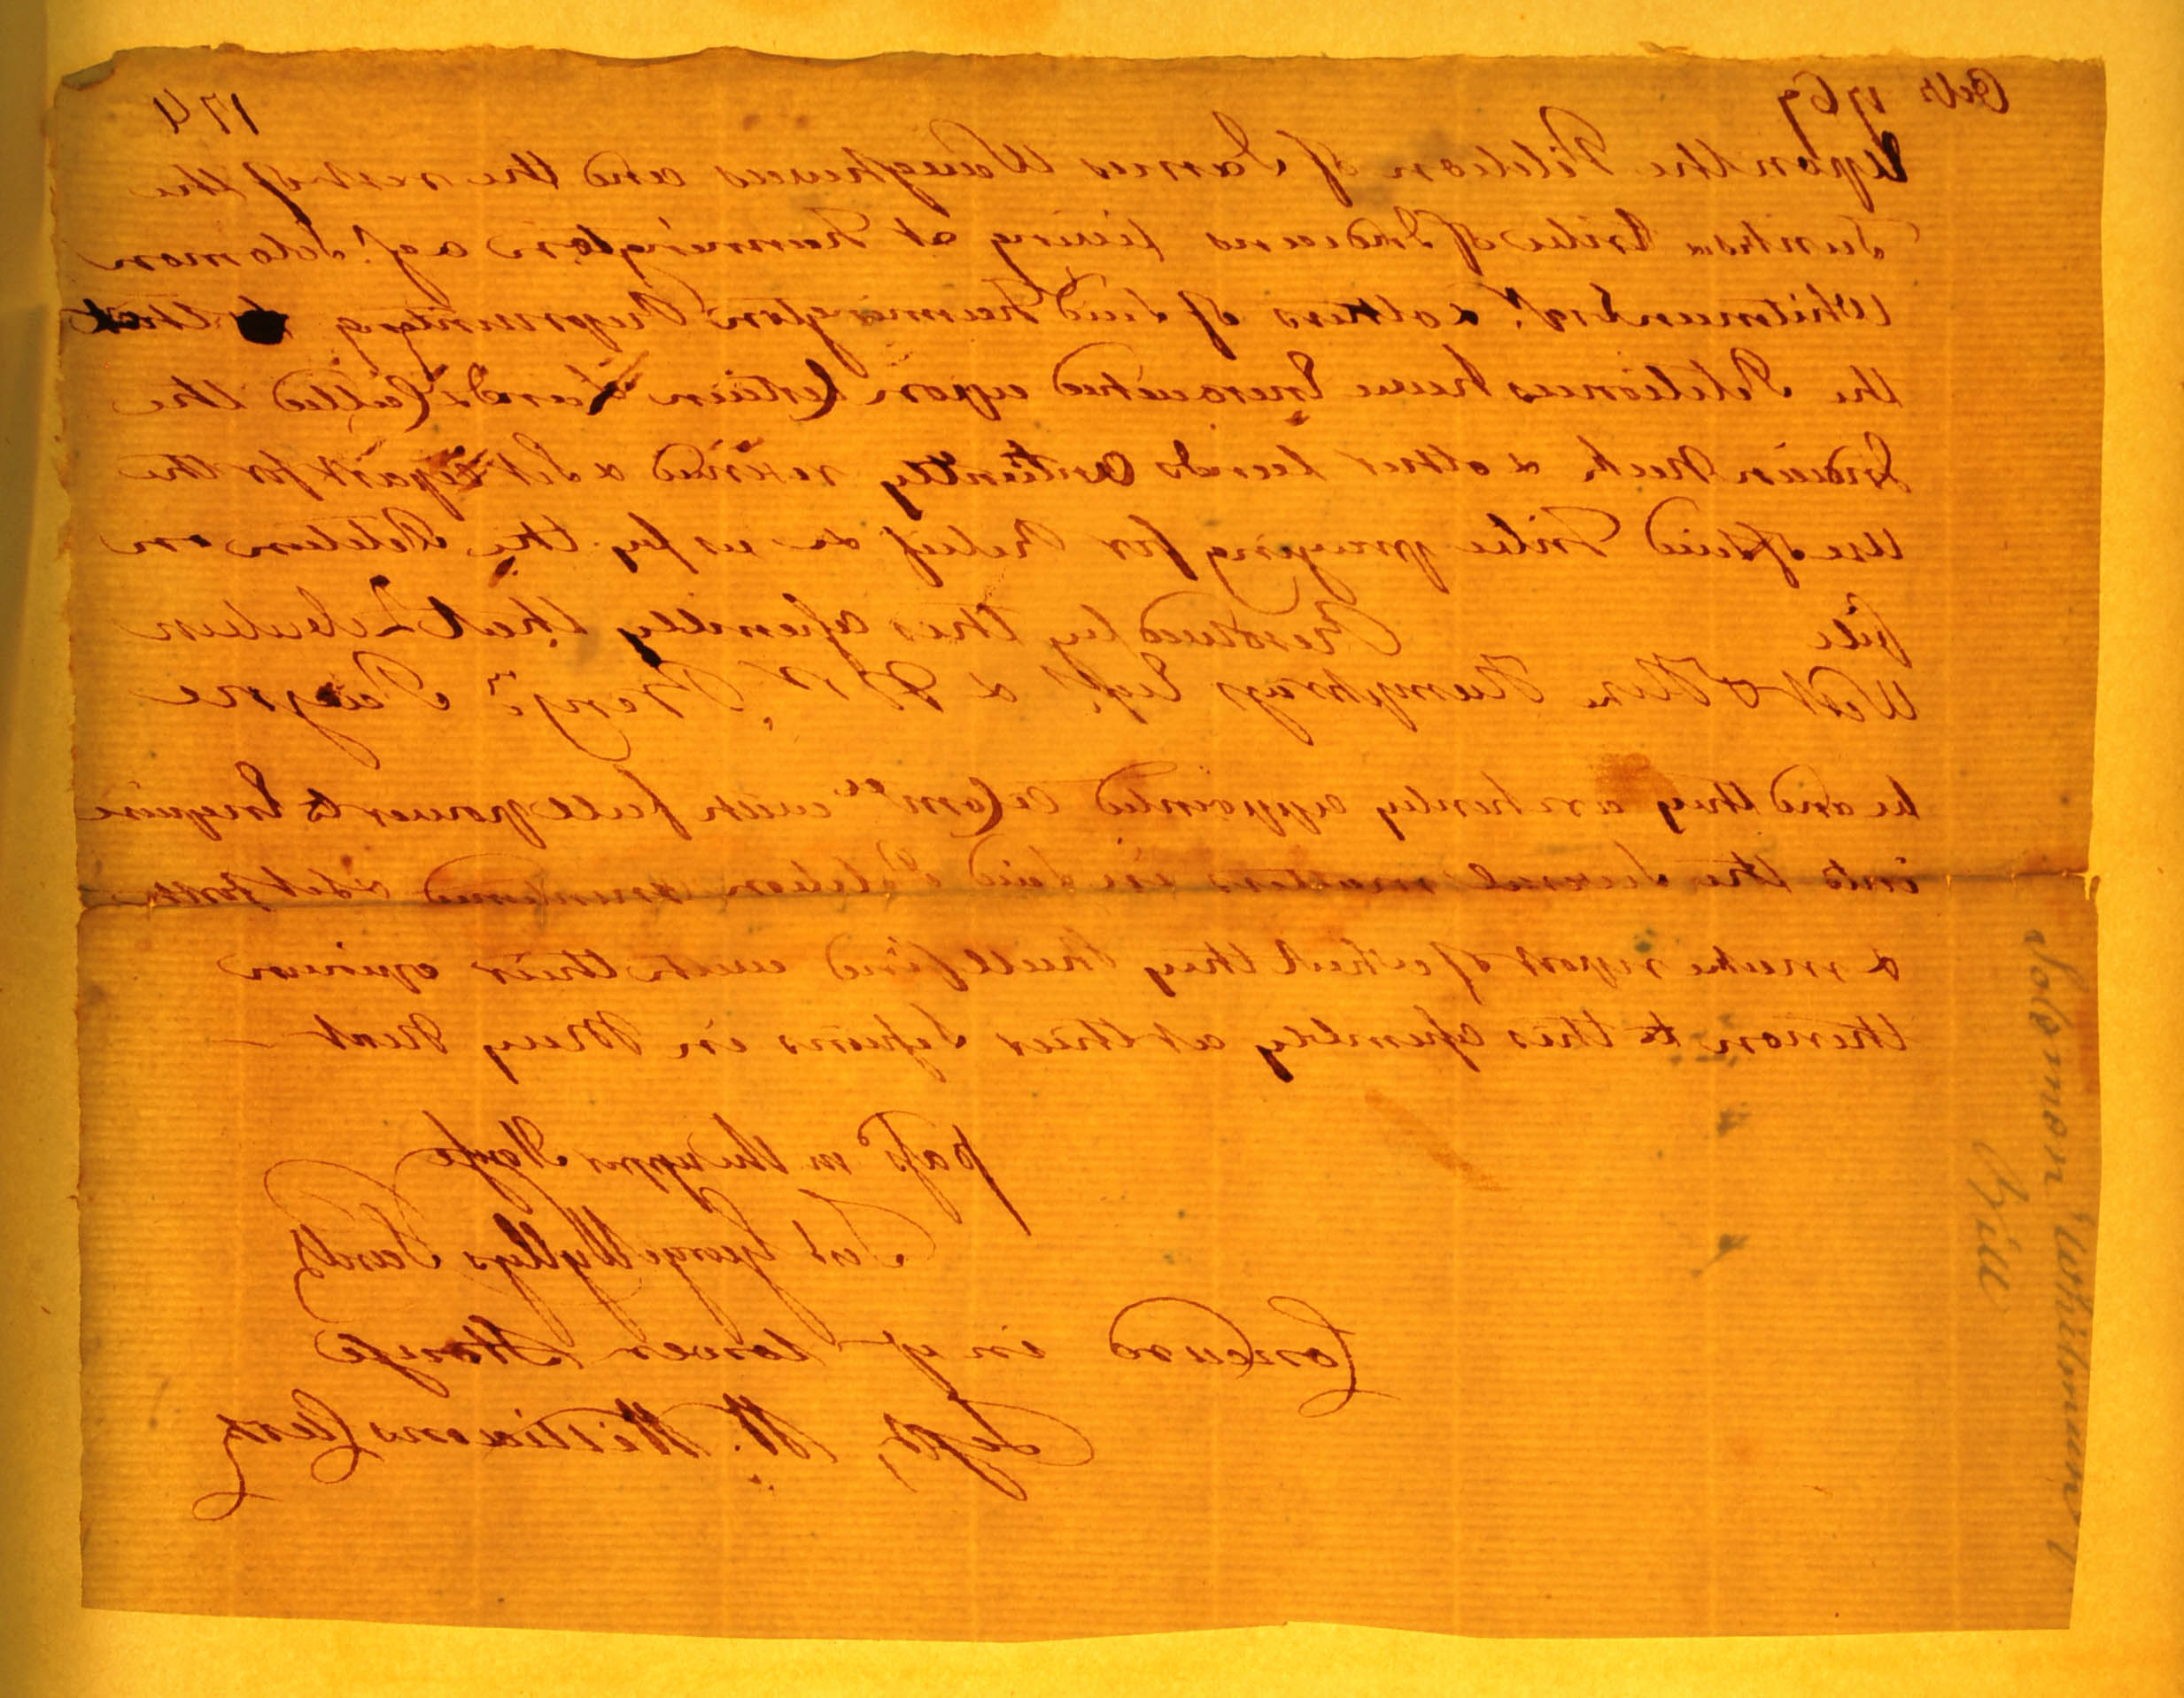 Octr 1767
174
Upon the Petition of James Waughwas and the rest of the
Tunksis Tribe of Indians living at Farmington agt. Solomon
Whitmund &c. & others of said Farmington Representing that
the Petitioners have Encroached upon Certain Lands Called the
Indian Neck & other Lands Antiently reserved & set apart for the
use of said Tribe praying for Relief &c as by the Petition on
file Resolved by this Assembly that Zebulun
West & Hez. Humphrys Esqr. & Benja. Payne
be and they are hereby appointed a Comtee with full power to Enquire
into the several matters in said Petition contained & set forth
& make report of what they shall find with their opinion
thereon to this Assembly at their Sessions in May Next
pass'd in the upper House
Test George Wyllys Secretr
Concurd in ye lower House
Test, W. Williams Clerk
Solomon Whitmun
Bill